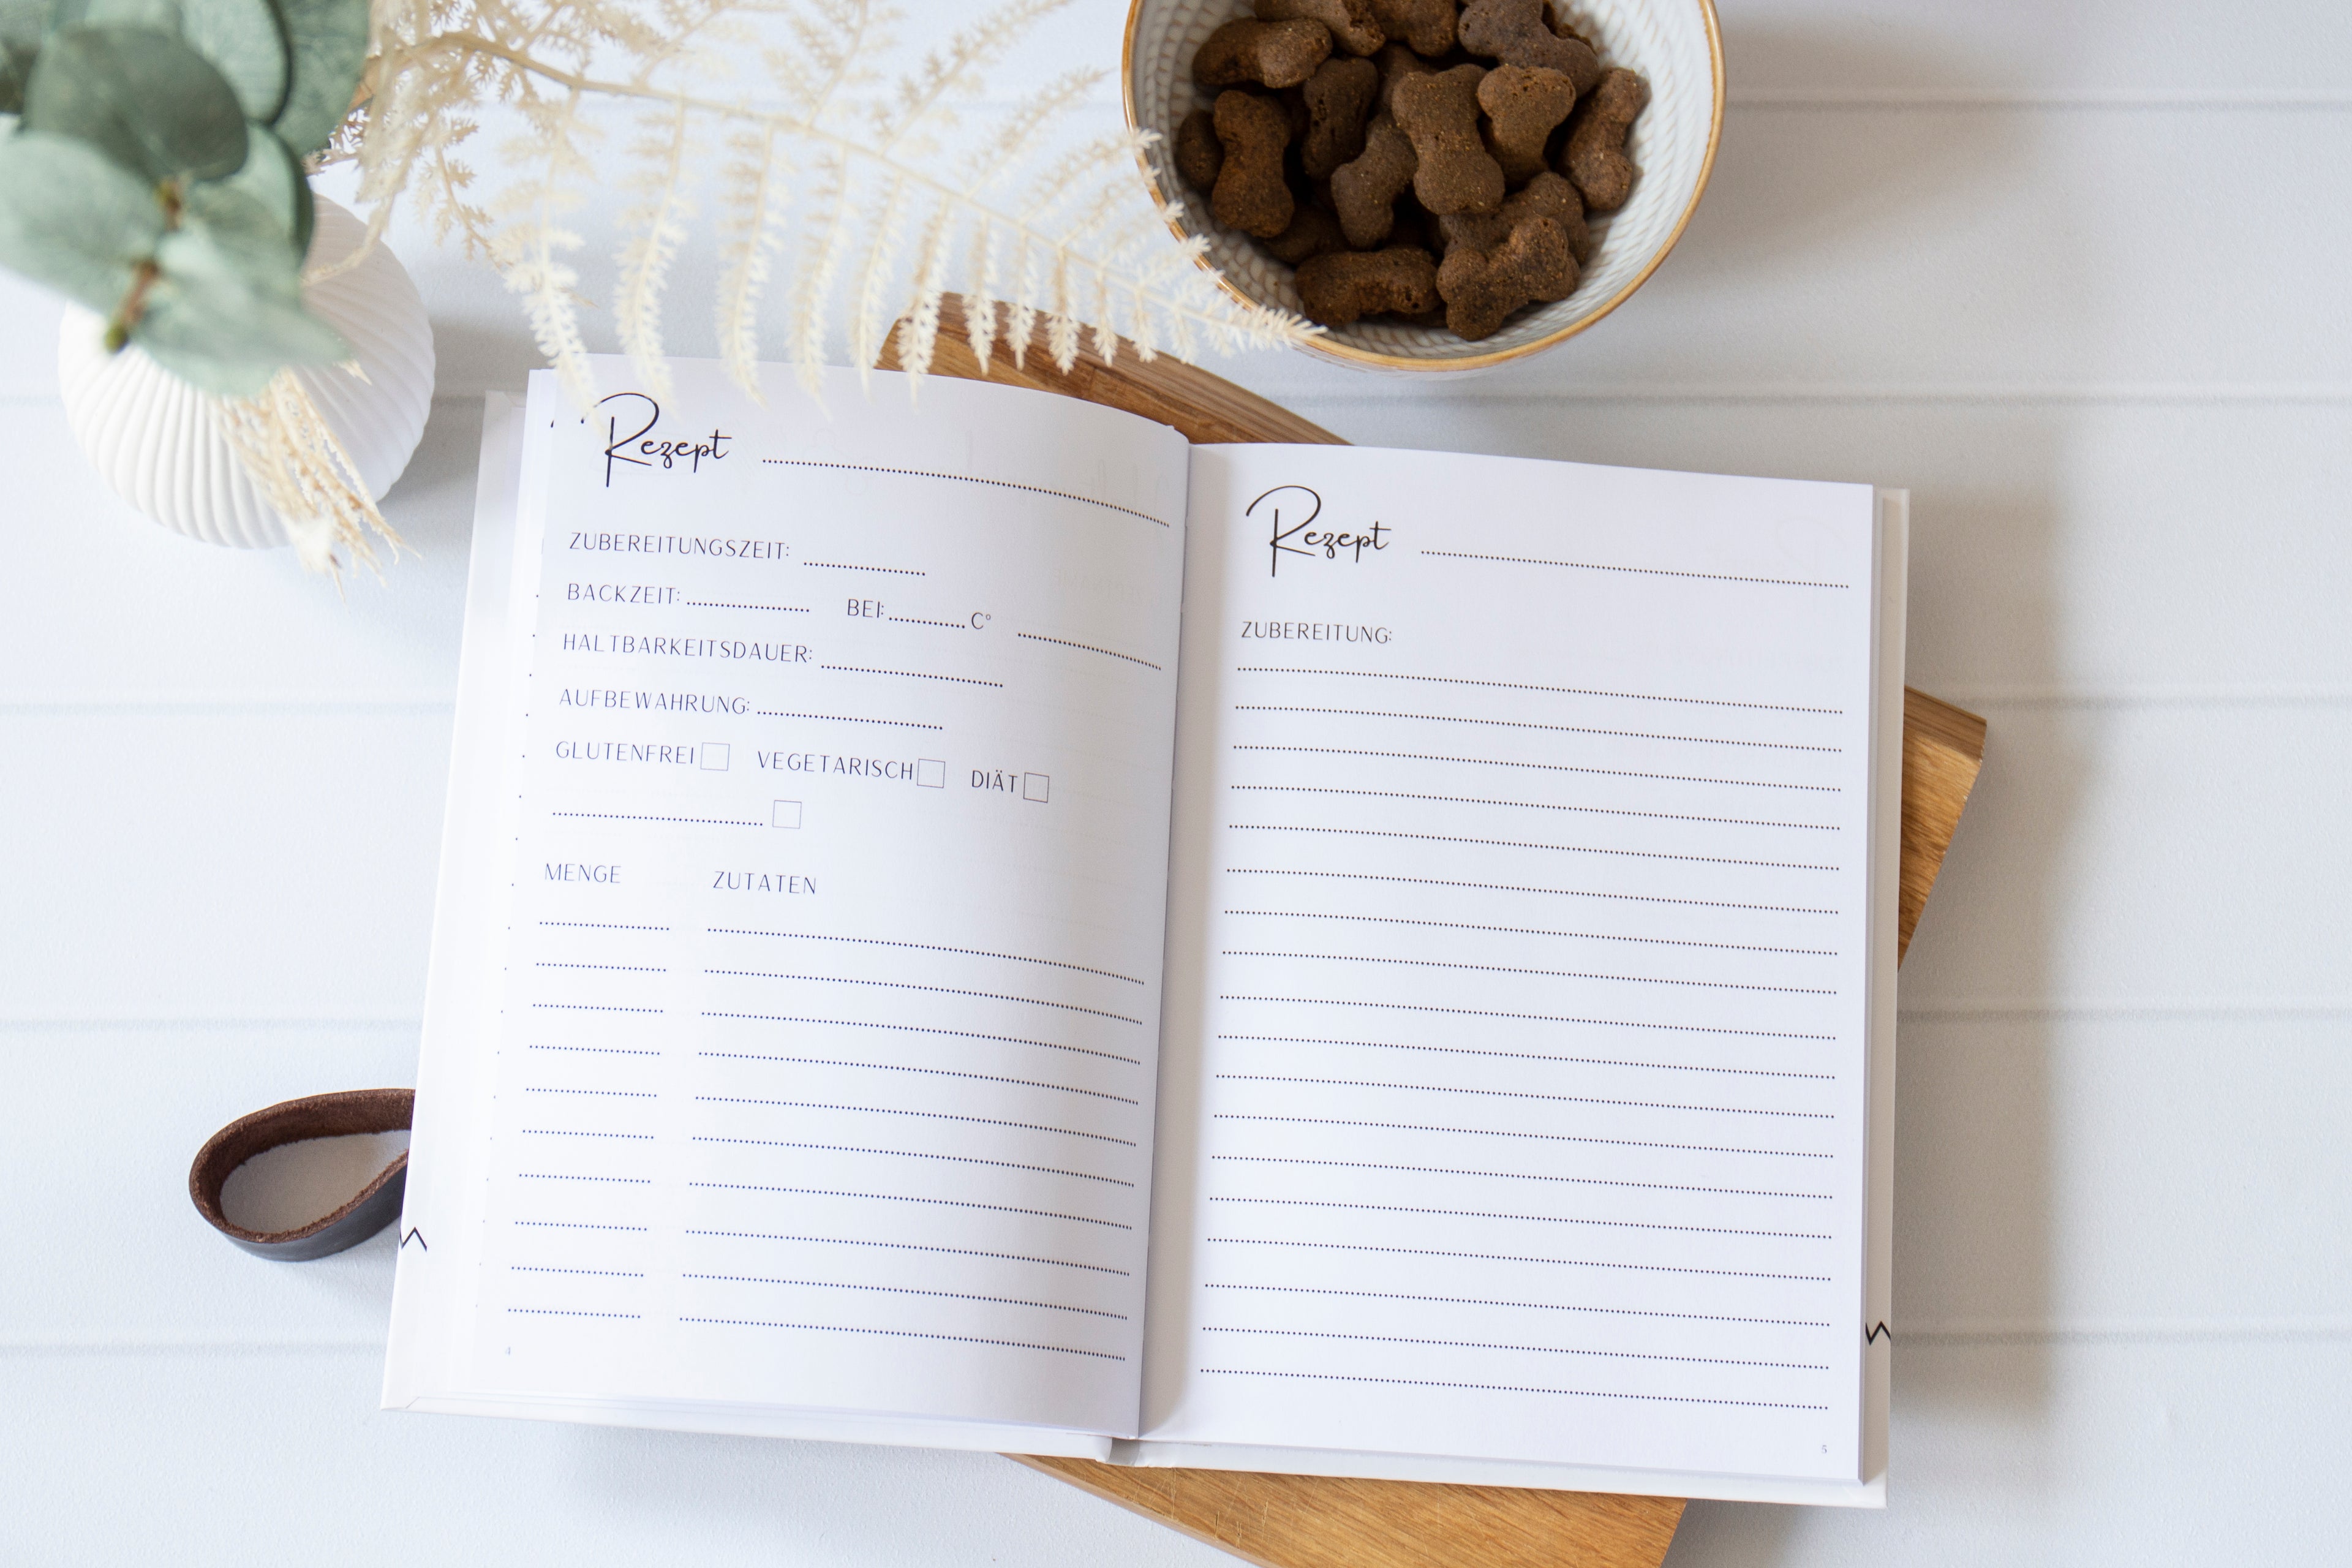 Rezept
ZUBEREITUNGSZEIT:
BACKZEIT: BEI: C°
HALTBARKEITSDAUER:
AUFBEWAHRUNG:
GLUTENFREI VEGETARISCH DIÄT
MENGE ZUTATEN
4
Rezept
ZUBEREITUNG:
5